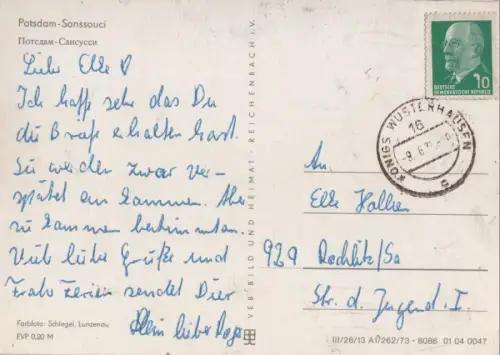 Potsdam-Sanssouci
Потсдам-Сансусси
Liebe Elke
Ich hoffe sehr das Du
die Briefe erhalten hast.
Sie werden zwar ver-
spätet an kommen. Aber
zu kommen bestimmt an.
Viele liebe Grüße und
Frohe Ferien sendet Dir
Dein lieber
Farbfoto: Schlegel, Lunzenau
EVP 0,20 M
VEB BILD UND HEIMAT · REICHENBACH i. V.
DEUTSCHE
DEMOKRATISCHE REPUBLIK
10
KÖNIGS WUSTERHAUSEN
16
An
Elke
929 Rochlitz/Sa
Str. d. Jugend 1.
III/26/13 A1/262/73 - 8086 01 04 0047